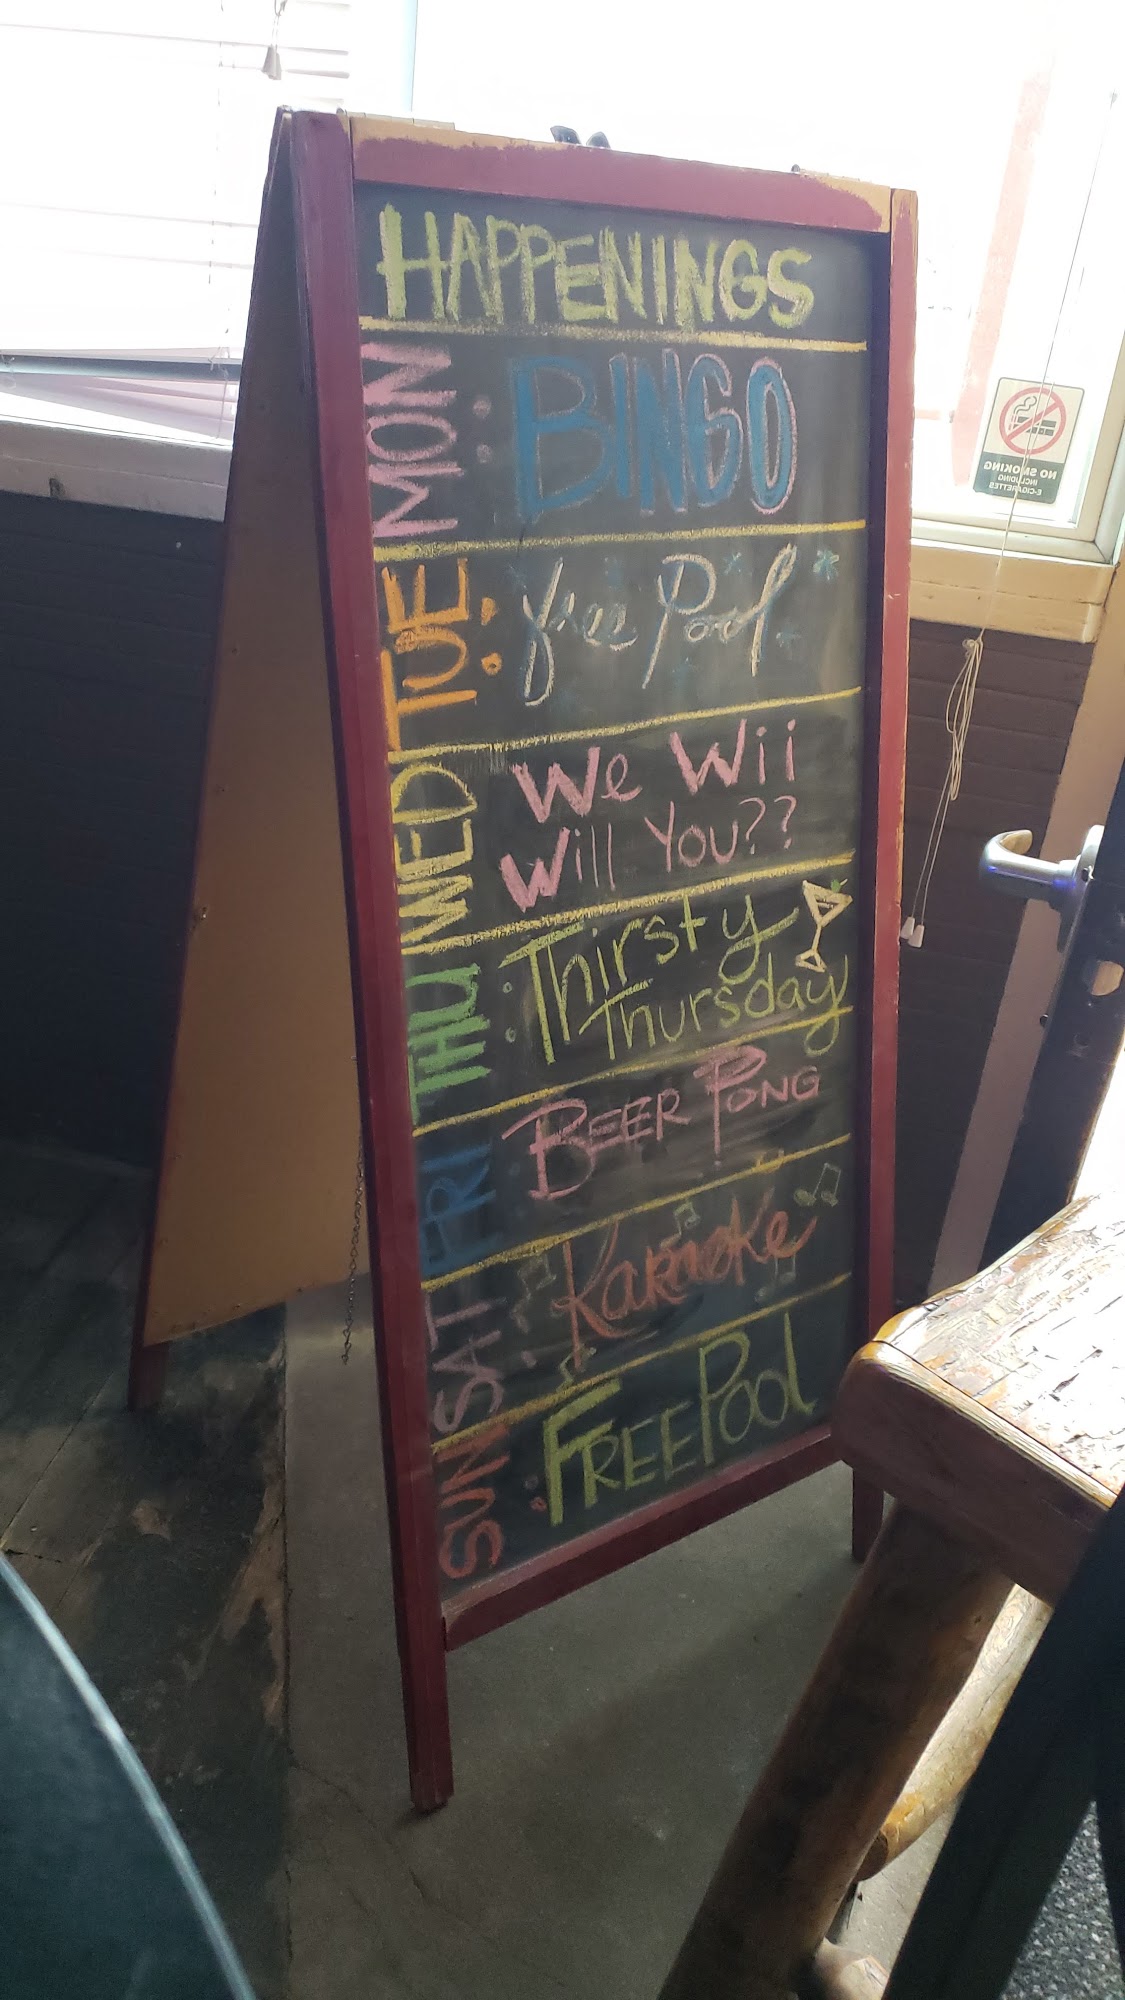 HAPPENINGS
MON: BINGO
TUE: free Pool
WED We Wii
Will You??
THU: Thirsty
Thursday
FRI: BEER PONG
SAT: KaraoKe
SUN: FREE Pool
NO SMOKING
INCLUDING
E-CIGARETTES